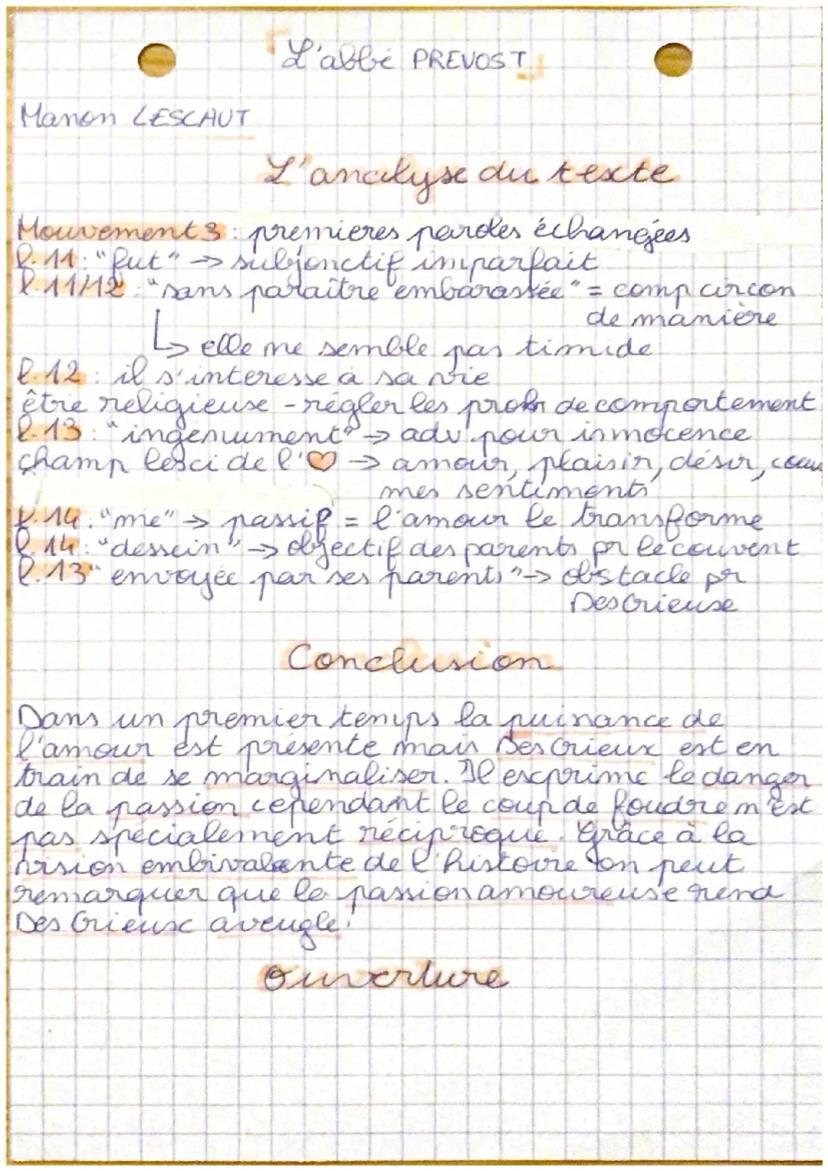 「L'abbé PREVOST」
Manon LESCAUT
L'analyse du texte
Mouvement 3 : premieres paroles échangées
l.11 : "fut" → subjonctif imparfait
l.11/12 : "sans paraître embarassée" = comp circon
de manière
↳ elle me semble pas timide
l.12 : il s'interesse à sa vie
être religieuse - régler les prob de comportement
l.13 : "ingenument" → adv pour innocence
champ lexci de l'♡ → amour, plaisir, désir, coeur
mes sentiments
l.14 : "me" → passif = l'amour le transforme
l.14 : "dessein" → objectif des parents pr le couvent
l.13 "envoyée par ses parents" → obstacle pr
DesGrieuse
Conclusion
Dans un premier temps la puissance de
l'amour est présente mais Des Grieux est en
train de se marginaliser. Il exprime le danger
de la passion cependant le coup de foudre n'est
pas spécialement réciproque. Grâce à la
vision embivalente de l'histoire on peut
remarquer que la passion amoureuse rend
Des Grieux aveugle.
Ouverture